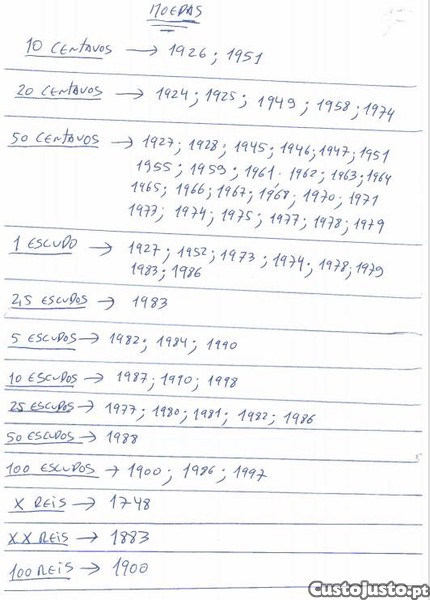 MOEDAS
10 CENTAVOS → 1926; 1951
20 CENTAVOS → 1924; 1925; 1949; 1958; 1974
50 CENTAVOS → 1927; 1928; 1945; 1946; 1947; 1951
1955; 1959; 1961. 1962; 1963; 1964
1965; 1966; 1967; 1968; 1970; 1971
1973; 1974; 1975; 1977; 1978; 1979
1 ESCUDO → 1927; 1952; 1973; 1974; 1978; 1979
1983; 1986
2,5 ESCUDOS → 1983
5 ESCUDOS → 1982; 1984; 1990
10 ESCUDOS → 1987; 1990; 1998
25 ESCUDOS → 1977; 1980; 1981; 1982; 1986
50 ESCUDOS → 1988
100 ESCUDOS → 1900; 1986; 1997
X REIS → 1748
XX REIS → 1883
100 REIS → 1900
CustoJusto.pt